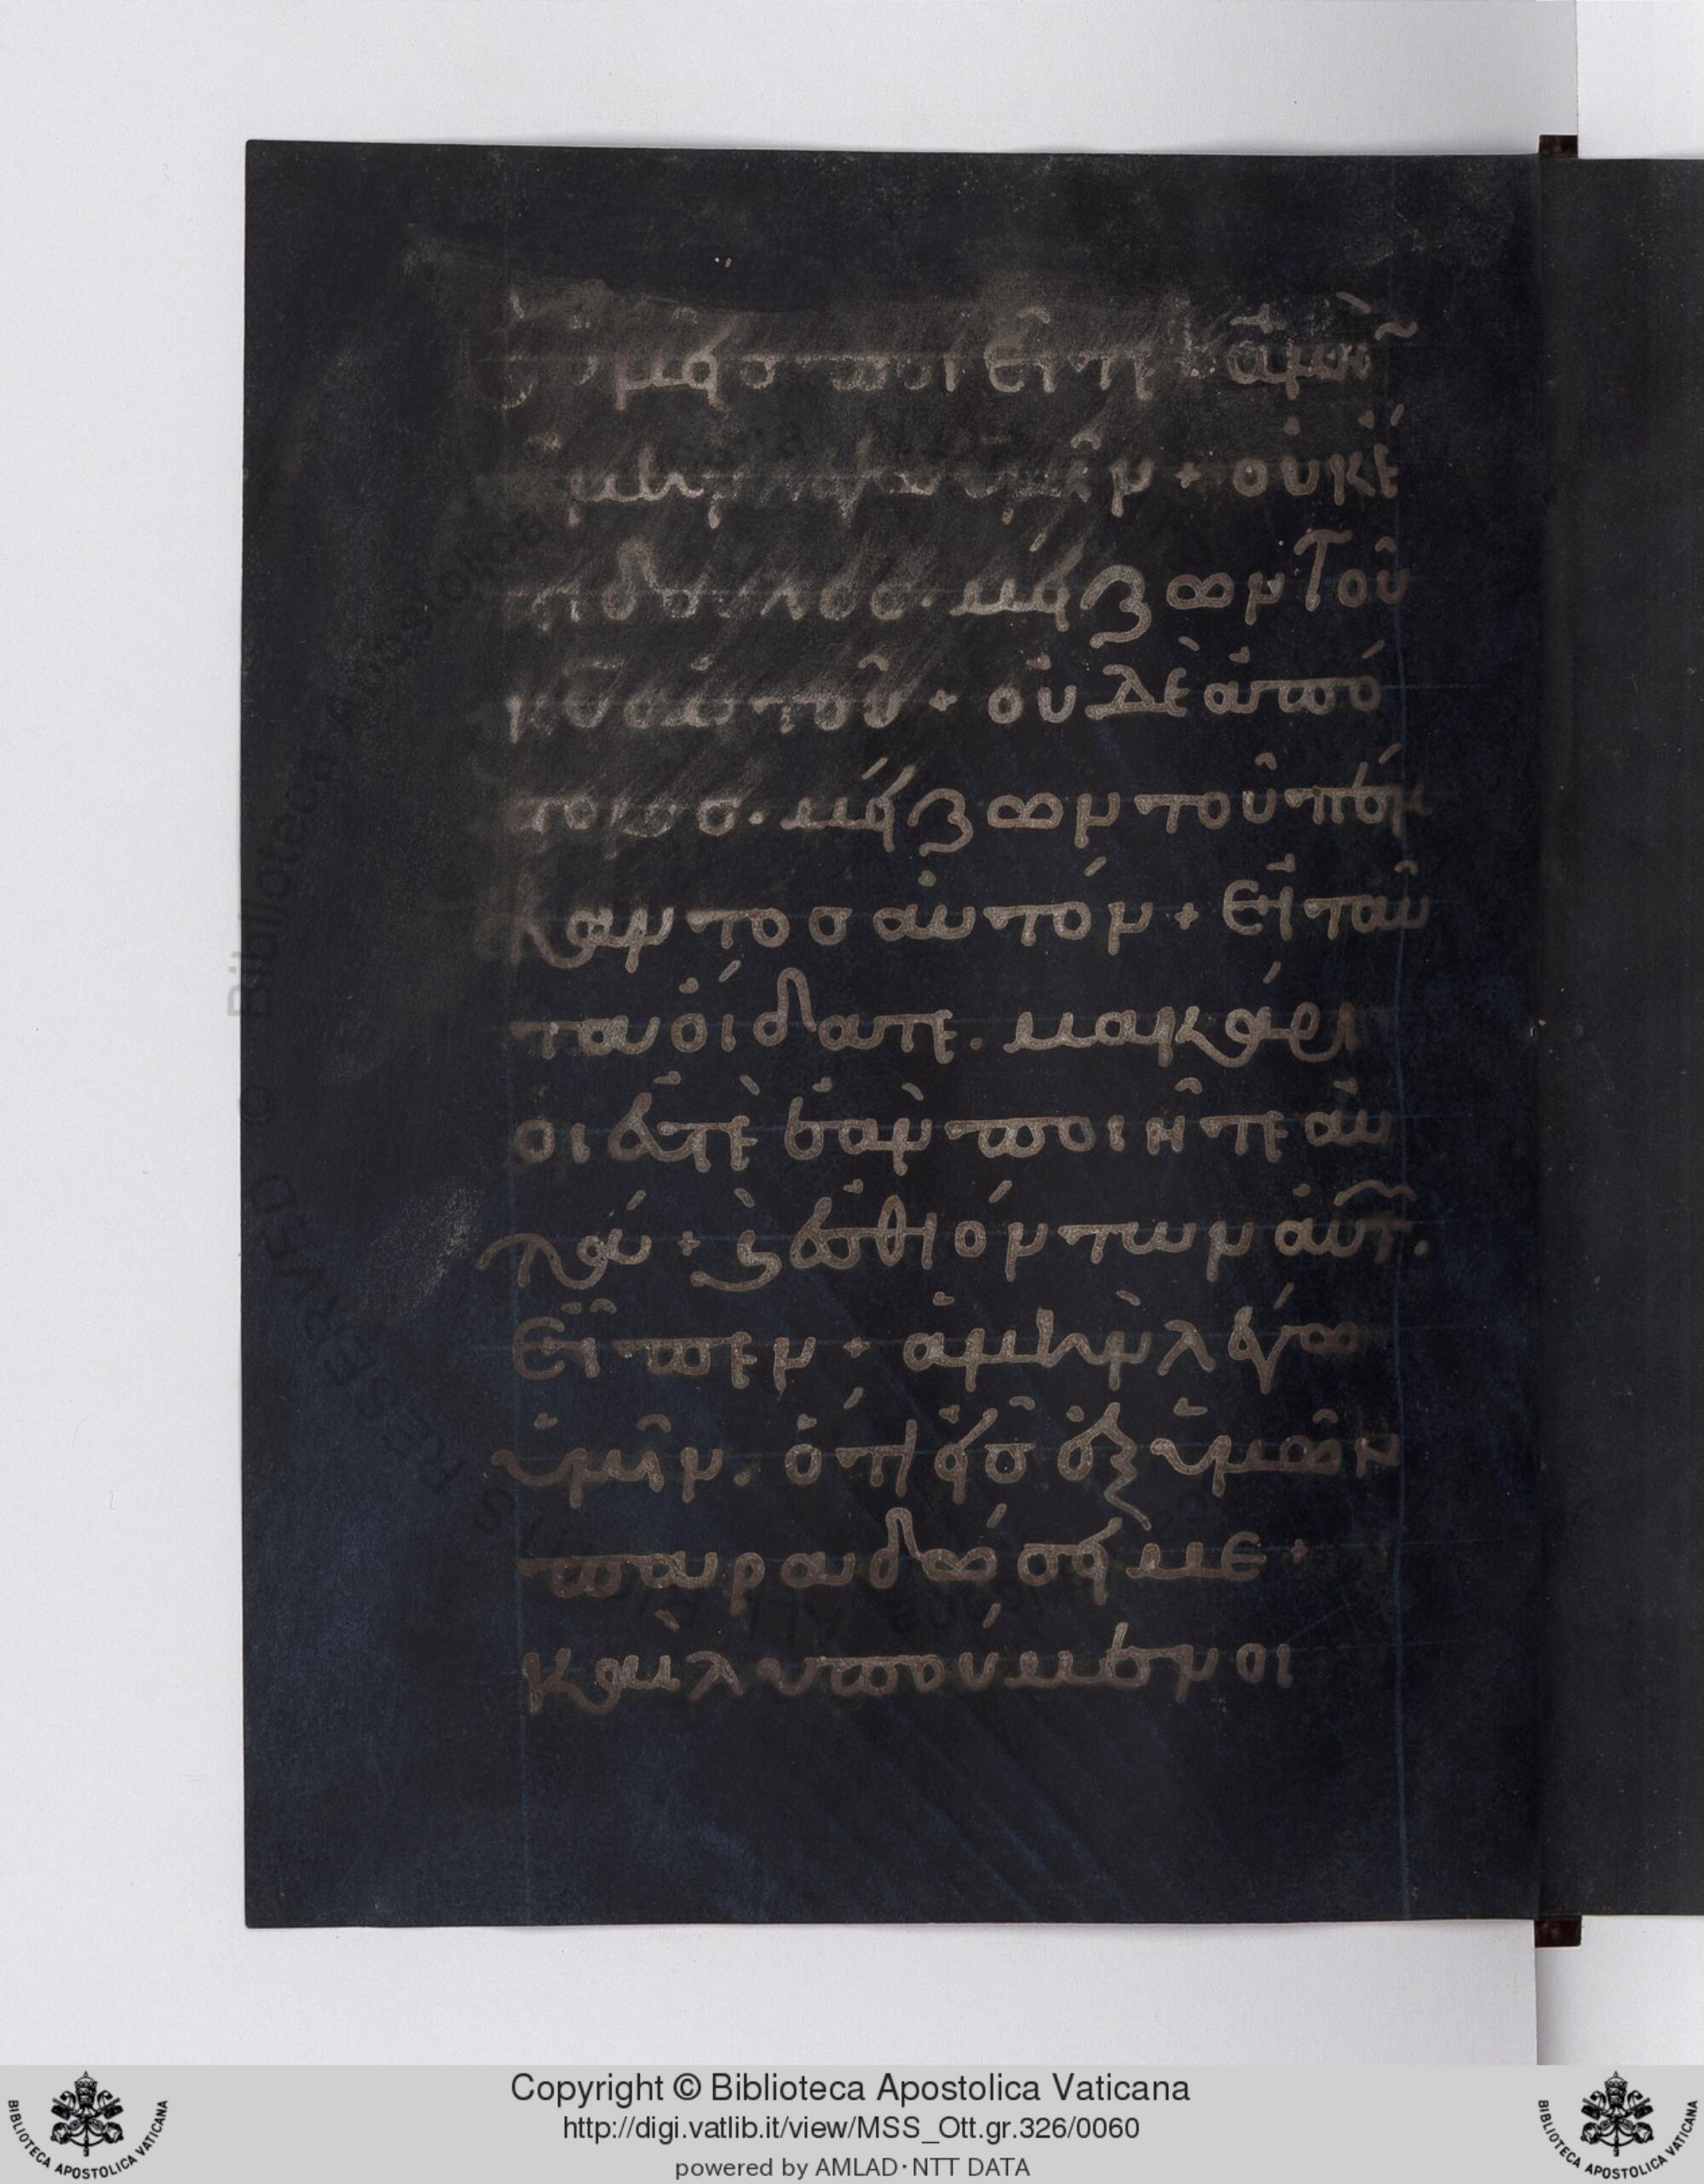 ὑμεῖς ποιεῖτε· ἀμὴν
ἀμὴν λέγω ὑμῖν + οὐκ ἔ
στι δοῦλος· μείζων τοῦ
κ̅υ̅ αὐτοῦ + οὐδὲ ἀπό
στολος· μείζων τοῦ πέμ
ψαντος αὐτόν + εἰ ταῦ
τα οἴδατε. μακάρι
οι ἐστὲ ἐὰν ποιῆτε αὐ
τά + ϗ ἐσθιόντων αὐτ̑.
εἶπεν + ἀμὴν λέγω
ὑμῖν. ὅτι εἷς ἐξ ὑμῶν
παραδώσει με +
καὶ λυπούμενοι
Copyright © Biblioteca Apostolica Vaticana
http://digi.vatlib.it/view/MSS_Ott.gr.326/0060
powered by AMLAD·NTT DATA
BIBLIOTECA APOSTOLICA VATICANA
BIBLIOTECA APOSTOLICA VATICANA